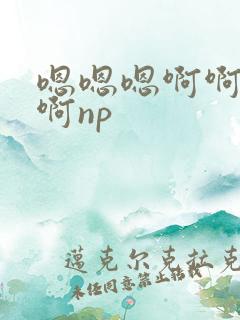 嗯嗯嗯啊啊
啊np
迈克尔克拉克
未经同意禁止转载